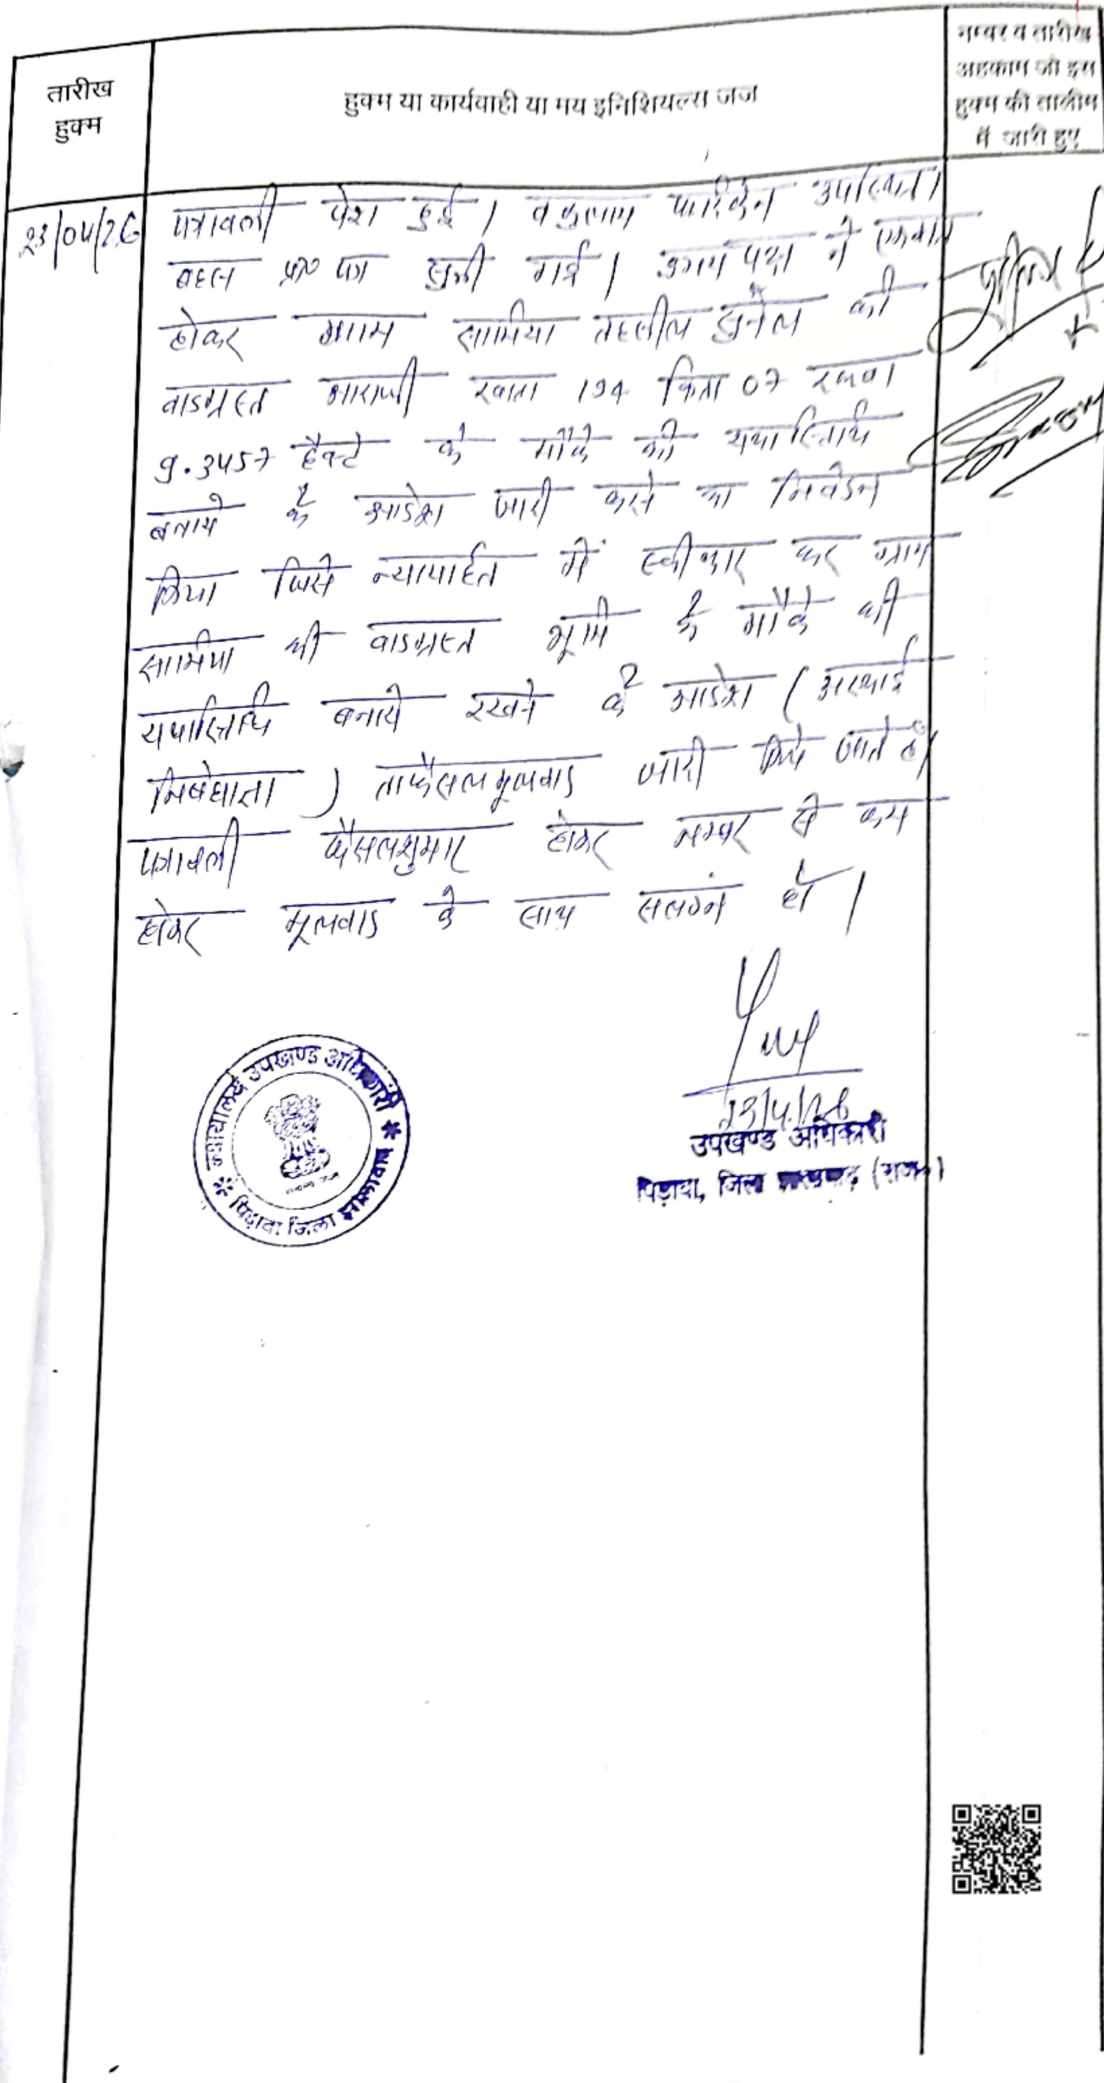 तारीख
हुक्म
हुक्म या कार्यवाही या मय इनिशियल्स जज
नम्बर व तारीख
अहकाम जो इस
हुक्म की तालीम
में जारी हुए
23/04/26
पत्रावली पेश हुई। वकुलाय फरिकेन उपस्थित।
बहस प्रा० पत्र सुनी गई। उभय पक्ष ने एकमत
होकर ग्राम सामिया तहसील सुनेल की
वादग्रस्त आराजी खाता 194 किता 07 रकबा
9.3457 हैक्टे के मौके की यथास्थिति
बनाये के आदेश जारी करने का निवेदन
किया जिसे न्यायहित में स्वीकार कर ग्राम
सामिया की वादग्रस्त भूमि के मौके की
यथास्थिति बनाये रखने के आदेश (अस्थाई
निषेधाज्ञा) ताफैसल मूलवाद जारी किये जाते है।
पत्रावली फैसलशुमार होकर नम्बर से कम
होकर मूलवाद के साथ सलग्न हो।
23/4/26
उपखण्ड अधिकारी
पिड़ावा, जिला झालावाड़ (राज०)
न्यायालय उपखण्ड अधिकारी
पिड़ावा जिला झालावाड़